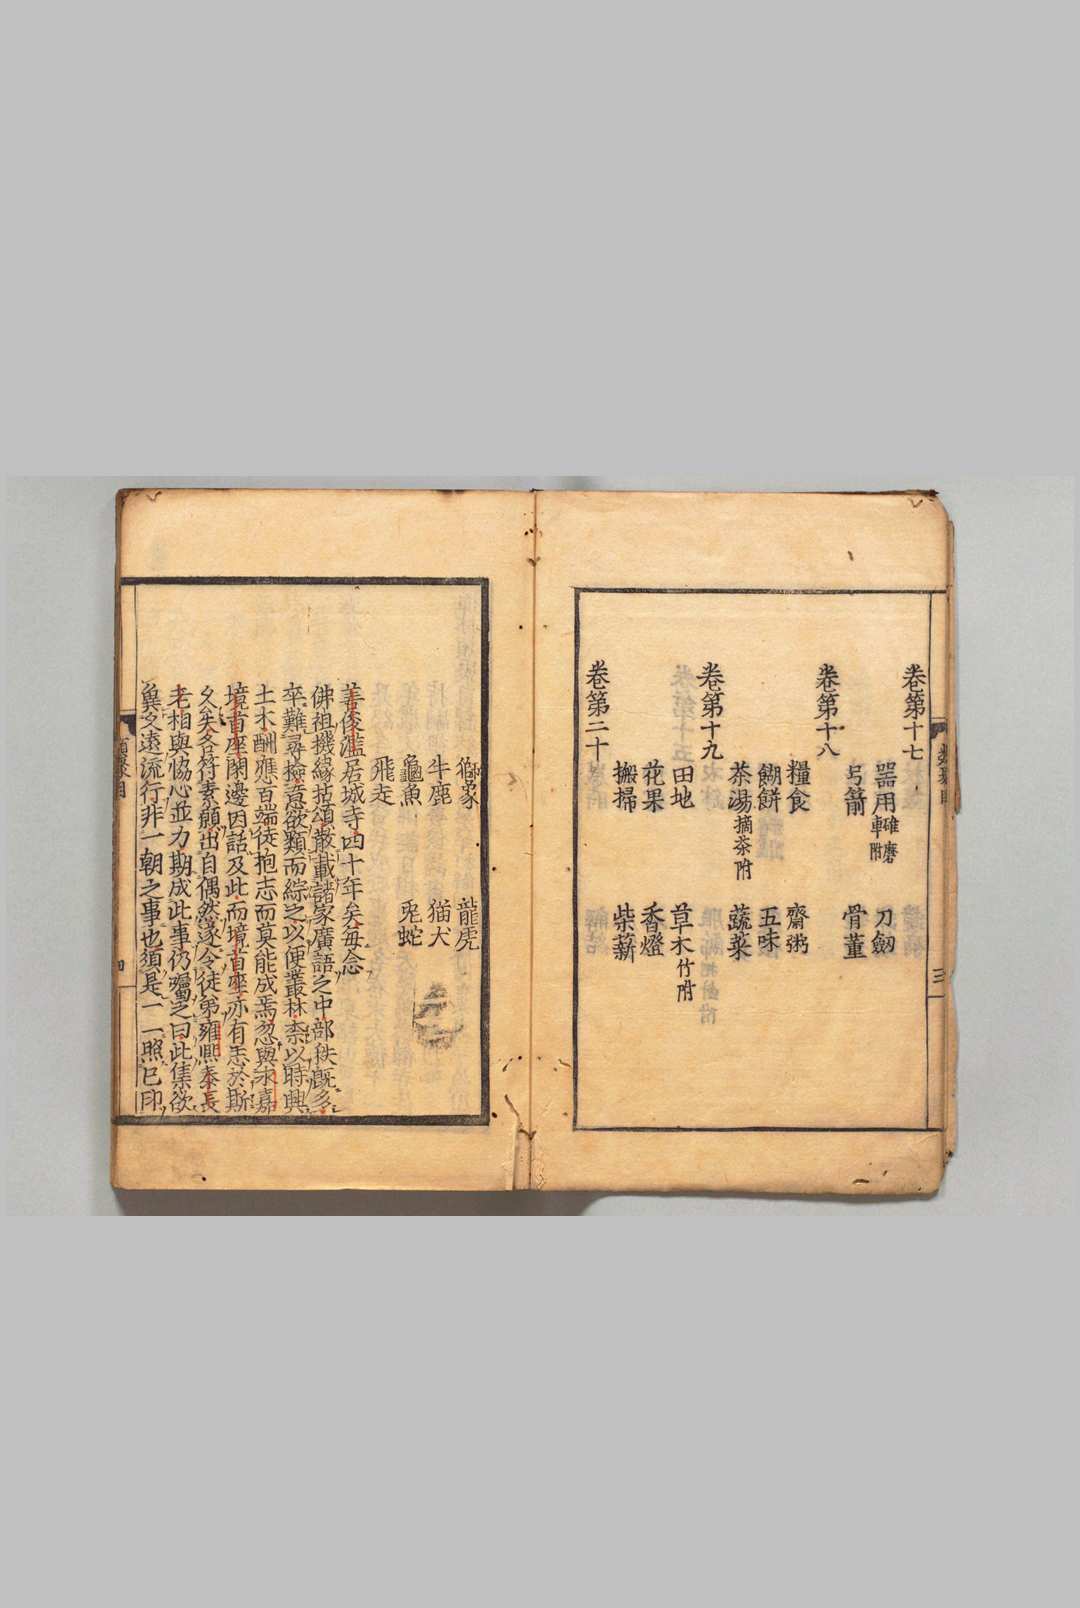 卷第十七
器用碓磨車附 刀劒
弓箭 骨董
卷第十八
糧食 齋粥
餬餅 五味
茶湯摘茶附 蔬菜
卷第十九
田地 草木竹附
花果 香燈
搬掃 柴薪
卷第二十
類聚目
三
獅象 龍虎
牛鹿 猫犬
龜魚 兎蛇
飛走
善俊濫居城寺四十年矣每念
佛祖機緣拈頌散載諸家廣語之中部秩旣多
卒難尋撿意欲類而綜之以便叢林柰以時興
土木酬應百端徒抱志而莫能成焉忽與永嘉
境首座閑邊因話及此而境首座亦有志於斯
久矣各符素願出自偶然遂令徒弟雍熙泰長
老相與恊心並力期成此事仍囑之曰此集欲
冀久遠流行非一朝之事也須是一一照已印
四